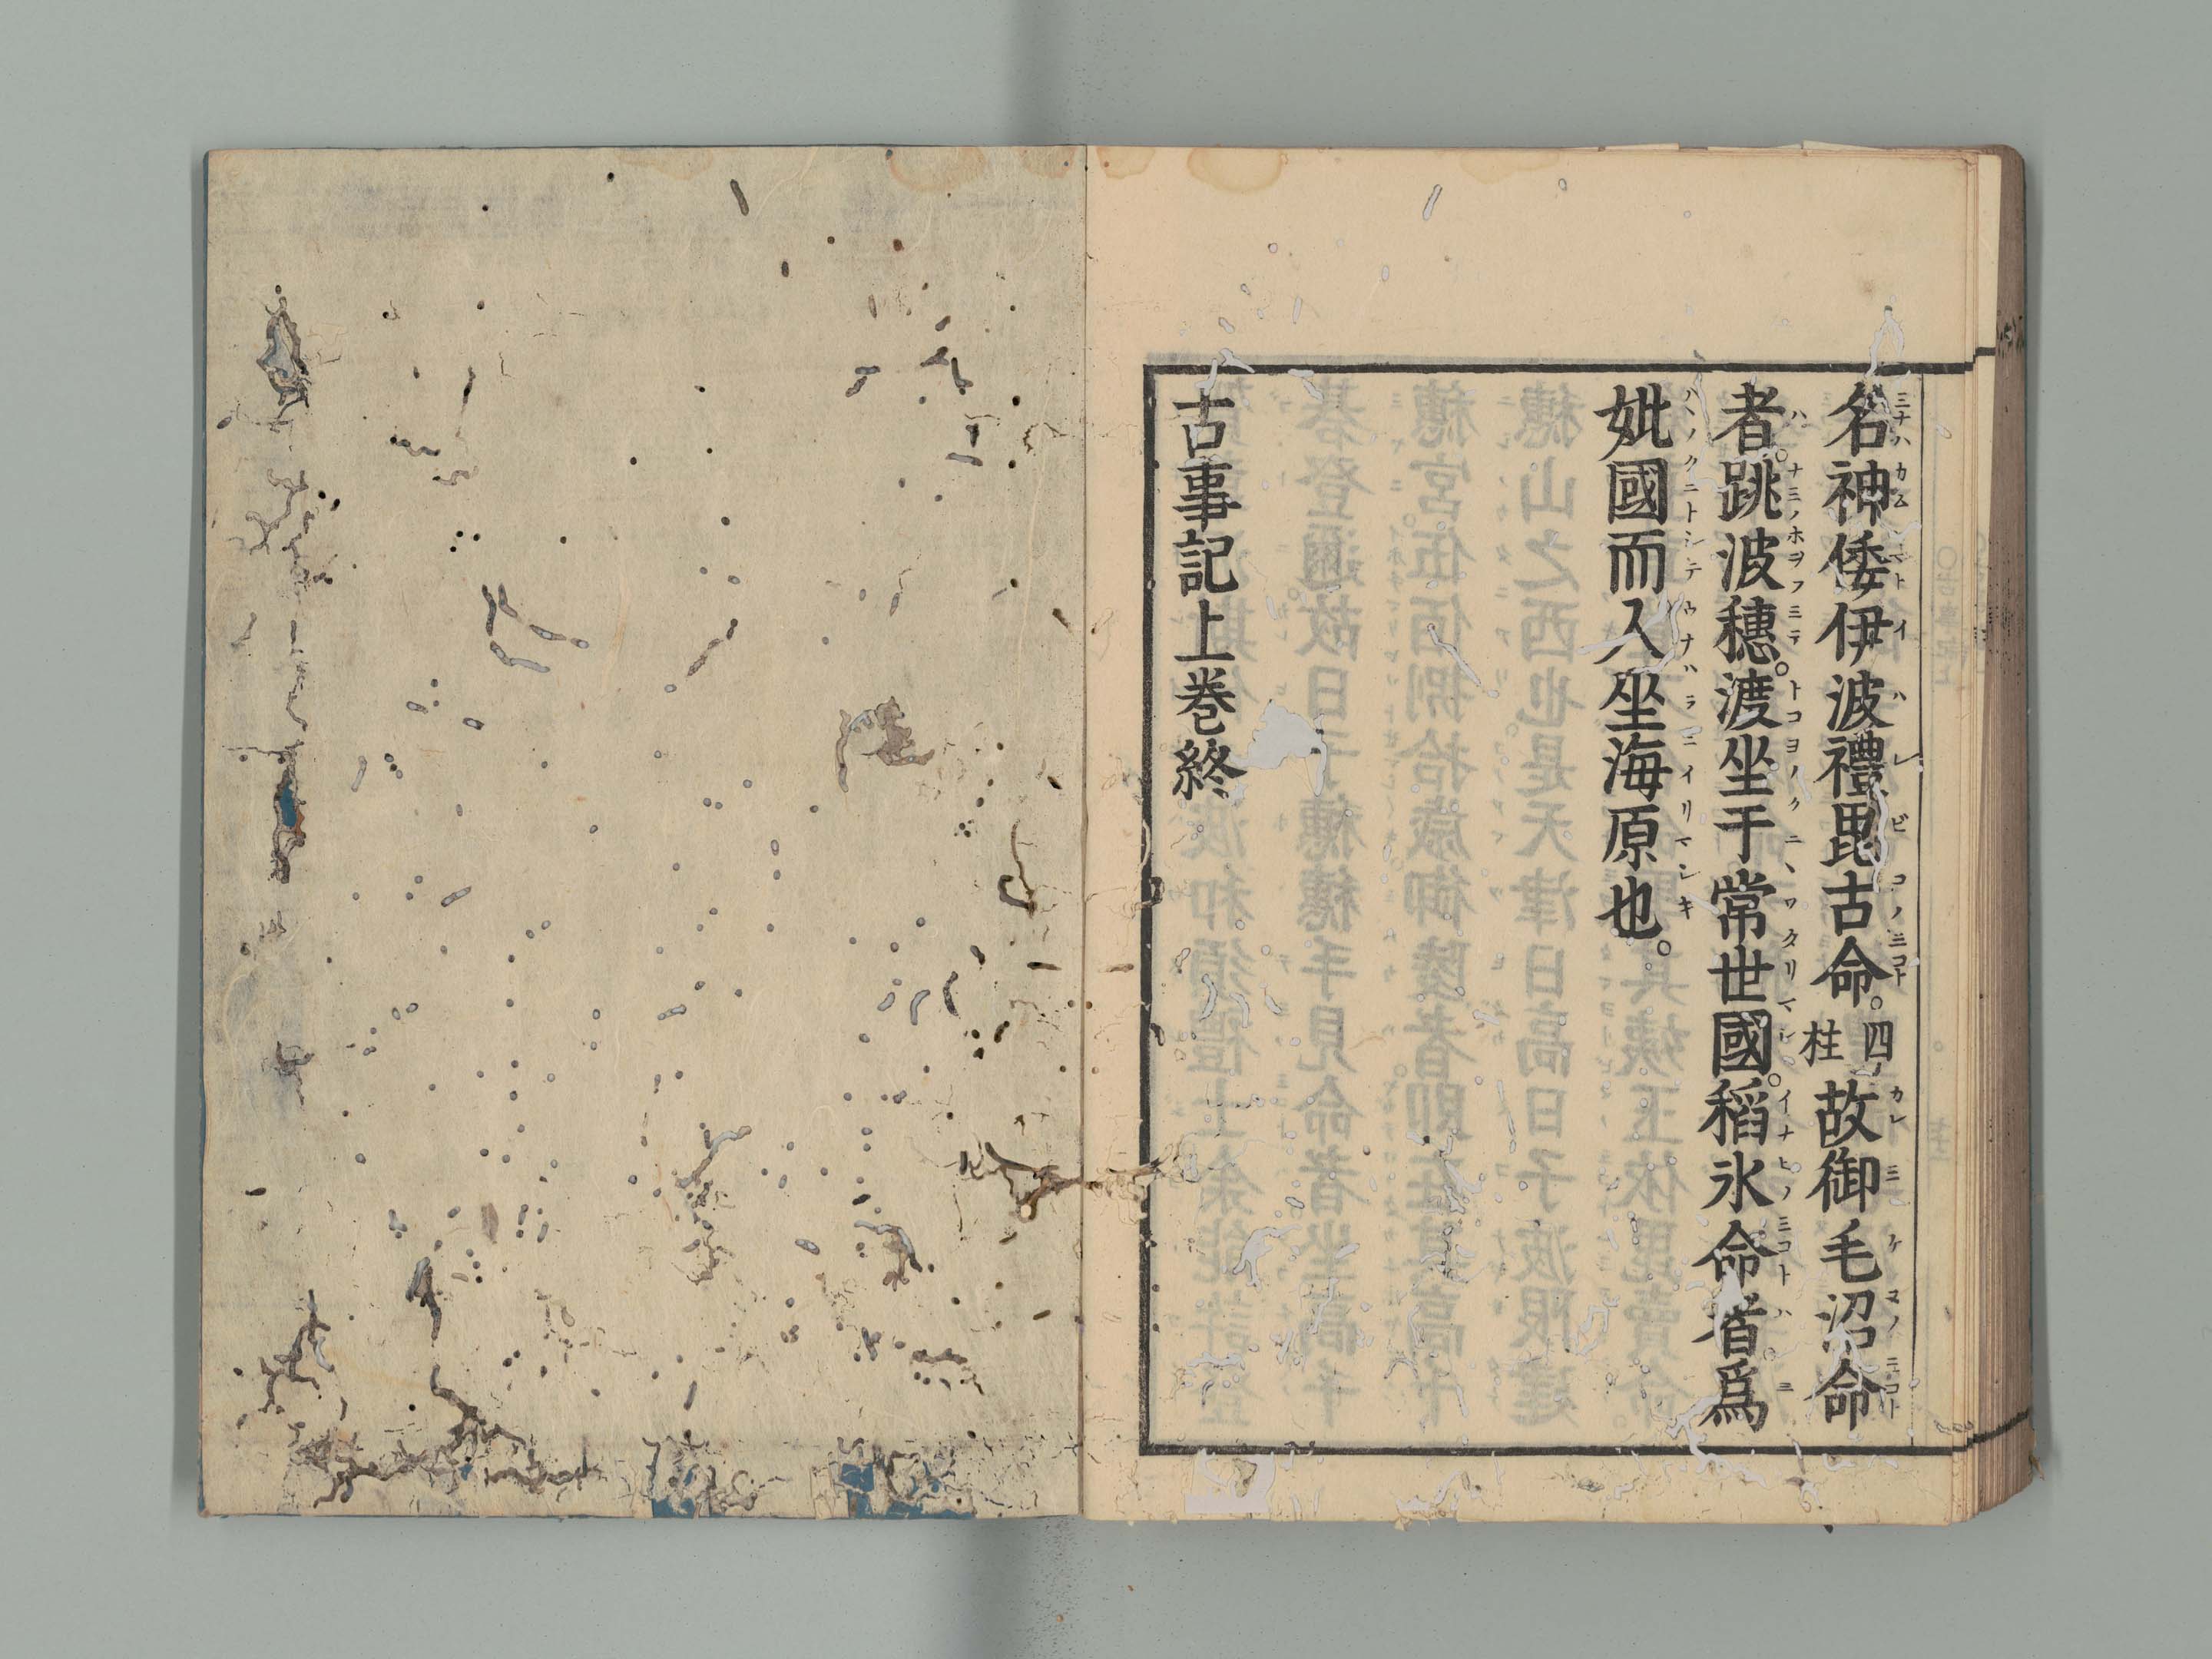 名神倭伊波禮毘古命。四柱故御毛沼命
者。跳波穗。渡坐于常世國。稻氷命者爲
妣國而入坐海原也。
古事記上卷終